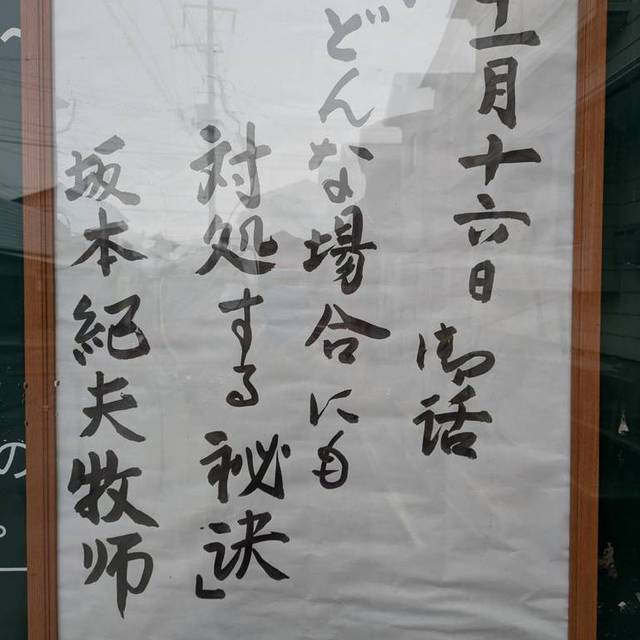 十一月十六日 御話
「どんな場合にも
対処する秘訣」
坂本紀夫牧師
の
。